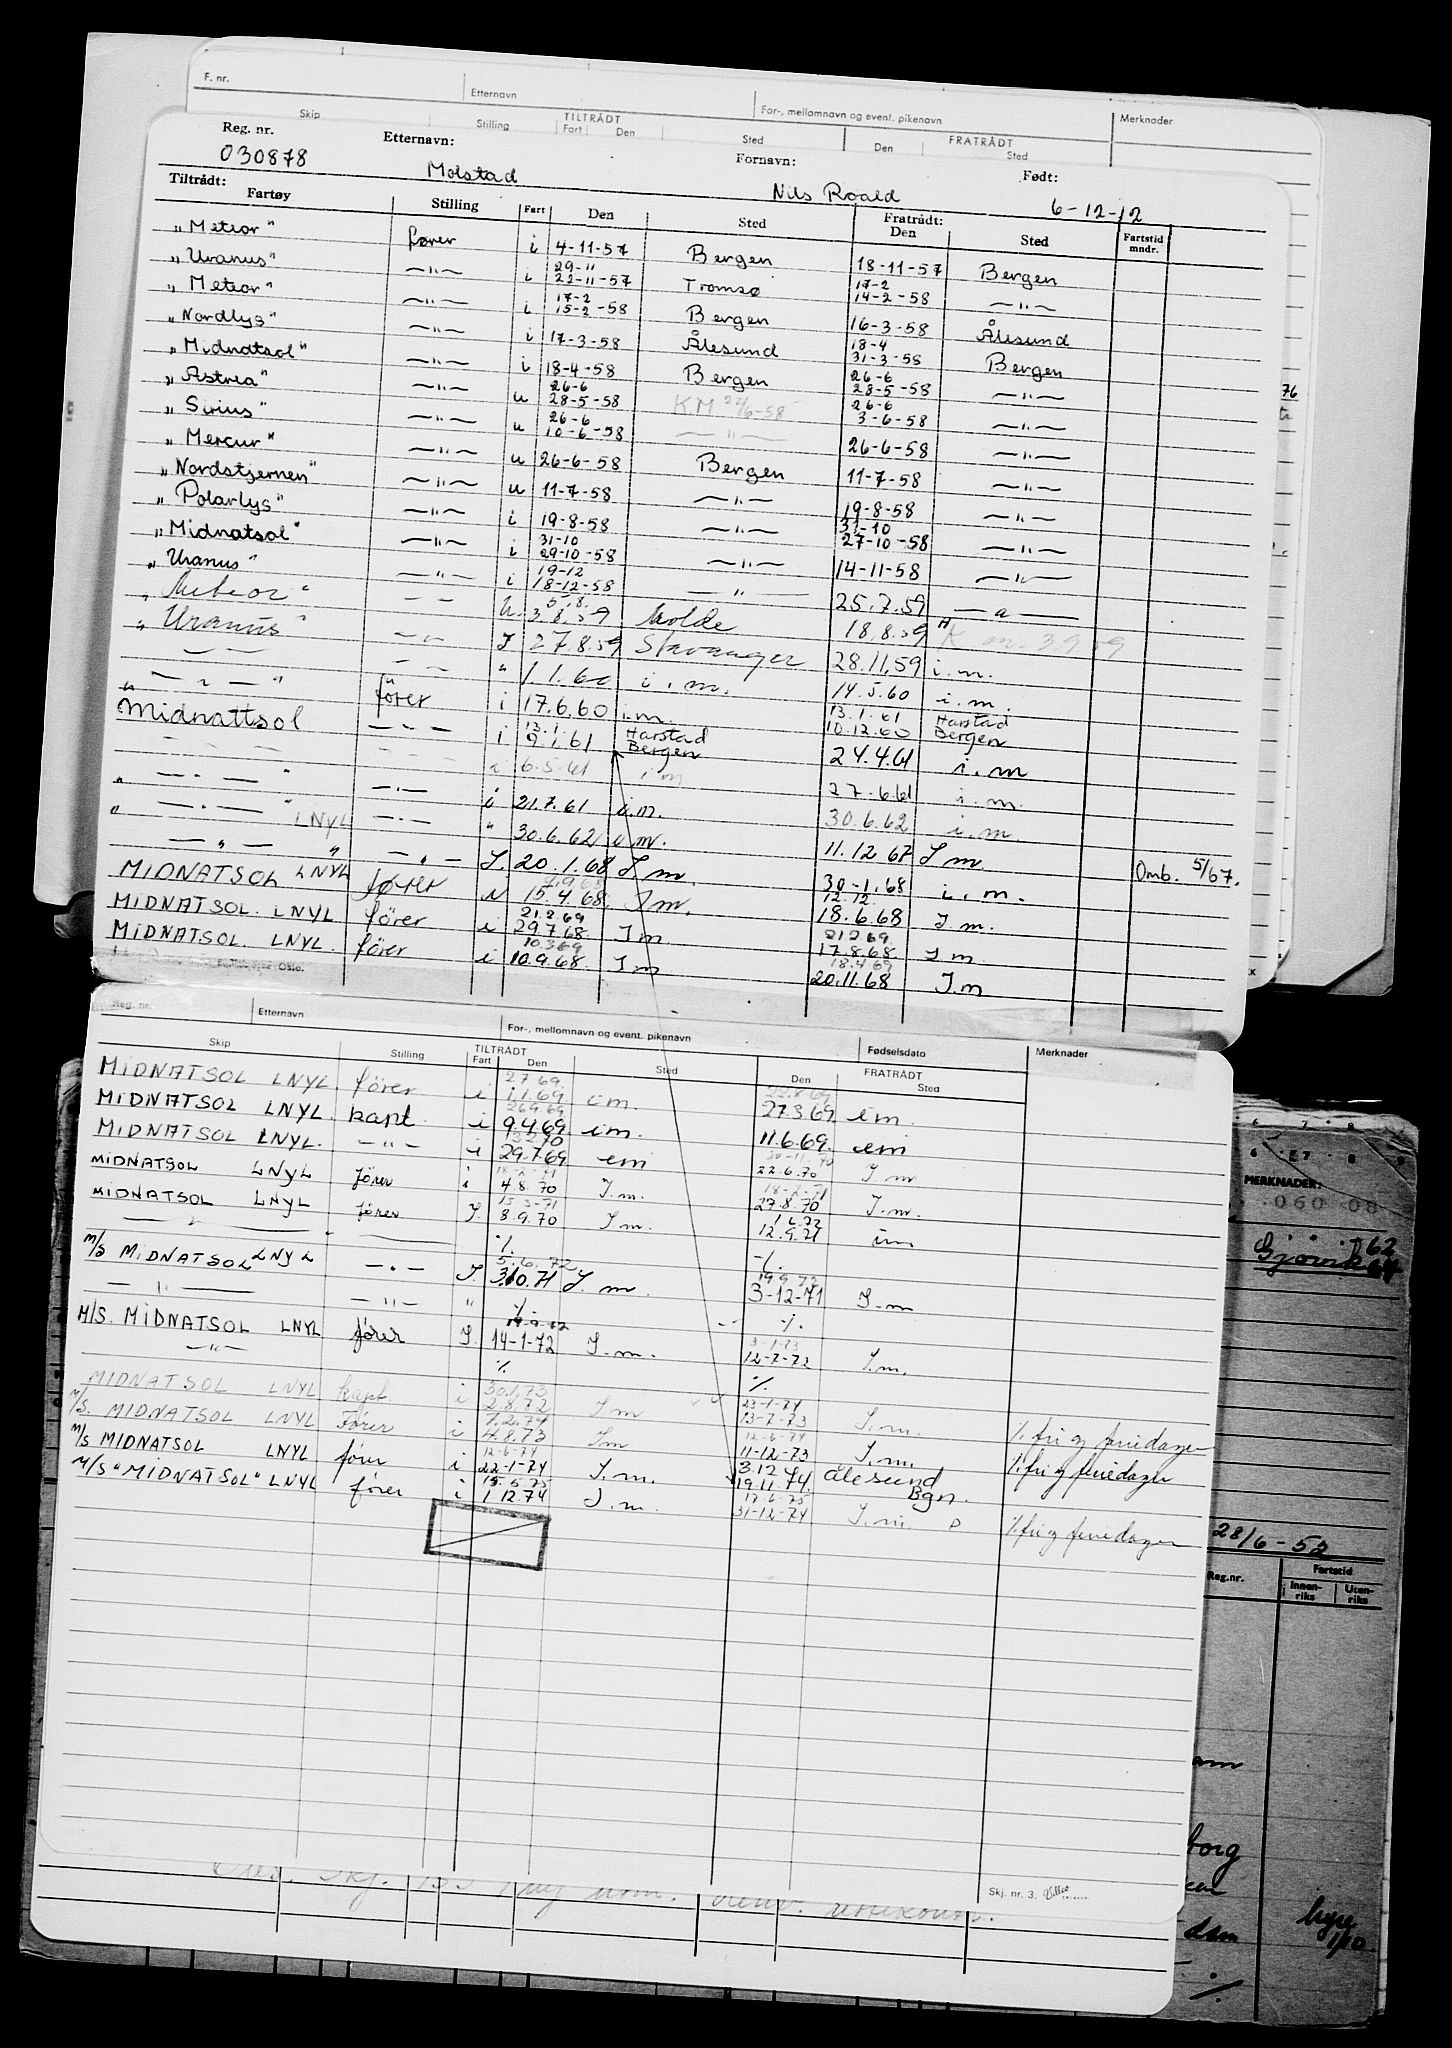 F. nr. Etternavn For-, mellomnavn og event. pikenavn Merknader
Skip Stilling TILTRÅDT Fart Den Sted FRATRÅDT Den Sted
Reg. nr. Etternavn: Fornavn: Født:
030878 Molstad Nils Roald 6-12-12
Tiltrådt: Fratrådt:
Fartøy Stilling Fart Den Sted Den Sted Fartstid mndr.
„Meteor" fører i 4-11-57 Bergen 18-11-57 Bergen
29-11 17-2
„Uranus" —„— i 22-11-57 Tromsø 14-2-58 —„—
17-2
„Meteor" —„— i 15-2-58 Bergen 16-3-58 Ålesund
18-4
„Nordlys" —„— i 17-3-58 Ålesund 31-3-58 Bergen
26-6
„Midnatsol" —„— i 18-4-58 Bergen 28-5-58 —„—
26-6 26-6
„Astrea" —„— u 28-5-58 KM 27/6-58 3-6-58 —„—
26-6
„Sirius" —„— u 10-6-58 —„— 26-6-58 —„—
„Mercur" —„— u 26-6-58 Bergen 11-7-58 —„—
„Nordstjernen" —„— u 11-7-58 —„— 19-8-58 —„—
31-10
„Polarlys" —„— i 19-8-58 —„— 27-10-58 —„—
31-10
„Midnatsol" —„— i 29-10-58 —„— 14-11-58 —„—
19-12
„Uranus" —„— i 18-12-58 —„— 25.7.59 —„—
5.8.
„Meteor" — — u. 3.8.59 Molde 18.8.59 K m. 3.9.59
„Uranus" —„— I 27.8.59 Stavanger 28.11.59 i.m.
—„— — — " 1.1.60 i.m. 14.5.60 i.m.
13.1.61 Harstad
—„— " fører i 17.6.60 i.m. 10.12.60 Bergen
13.1. Harstad
Midnattsol —„— i 9.1.61 Bergen 24.4.61 i.m
i 6.5.61 i m 27.6.61 i.m.
„ —.— " —.— i 21.7.61 i.m. 30.6.62 i.m.
„ —.— " LNYL —.— " 30.6.62 i.m. 11.12 67 I m
—„— " —„— I. 20.1.68 I m. 30-1.68 i.m. Omb. 5/67.
12.12
MIDNATSOL LNYL fører 15.4.68 I m. 18.6.68 I m.
21.2 69 21 2 69
MIDNATSOL. LNYL fører i 29.7.68. I m 17.8.68 I m
10.3 69 18.4 69
MIDNATSOL. LNYL. fører i 10.9.68. I m 20.11.68 I.m
Reg. nr. Etternavn For-, mellomnavn og event. pikenavn Fødselsdato Merknader
Skip Stilling TILTRÅDT Fart Den Sted FRATRÅDT Den Sted
2.7.69. 22.8.69
MIDNATSOL LNYL. fører i 1.1.69. i m. 27.3.69 i m.
26.9.69
MIDNATSOL LNYL. kapt. i 9.4.69 i m. 11.6.69. i m
MIDNATSOL LNYL. —„— i 29.7.69 i m 22.6.70 I m
18-2-71 18-2-71
MIDNATSOL LNYL fører i 4.8.70 I.m. 27.8.70 I.m.
15-3-71 1.6.72
MIDNATSOL LNYL fører I. 8.9.70 I m. 12.9.71 i m
—„— —— ·/. ·/.
5.6.72 19 9.72
M/S MIDNATSOL LNYL —„— I 3.10.71 I. m. 3-12-71 I.m
—„— —„— " ·/. ·/.
3-1-73
M/S. MIDNATSOL LNYL fører I. 14-1-72 I.m. 12-7-72 I.m.
—„— ·/. ·/.
30.1.73 23-1-74
MIDNATSOL LNYL kapt. i 2.8.72 I m 13-7-73 I.m. ·/. fri og feriedager
7.2.74 12-6-74
M/S. MIDNATSOL LNYL Fører i 4.8.73 I m 11-12-73 I.m. ·/. fri og feriedager
12-6-74 3.12 74 Ålesund
M/S MIDNATSOL LNYL fører i 22-1-74 I.m. 19.11 74. Bgn.
15.5.75 17.6.75
M/S "MIDNATSOL" LNYL fører i 1.12.74 I.m. 31-12-74 I.m. D ·/. fri og feriedager
Skj. nr. 3.
MERKNADER:
060 08
Gjøvik
28/6-52
Reg.nr. Fartstid
Innenriks Utenriks
hyre
1/10